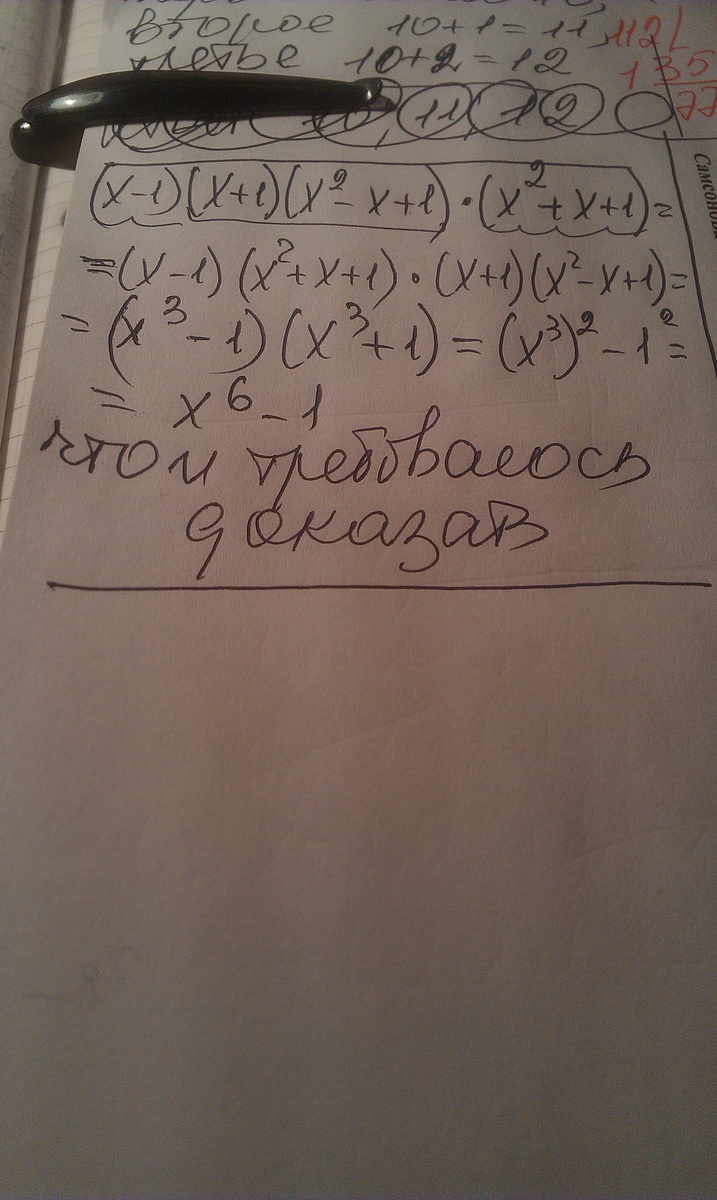 второе 10+1=11, 112
третье 10+2=12 135
77
11, 12
Самсонов
(x-1)(x+1)(x²-x+1)·(x²+x+1)=
=(x-1)(x²+x+1)·(x+1)(x²-x+1)=
=(x³-1)(x³+1)=(x³)²-1²=
= x⁶-1
что и требовалось
доказав